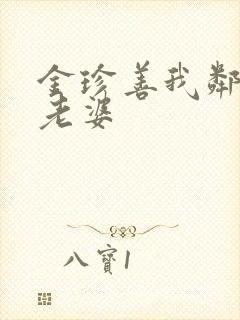 金珍善我鄰
老婆
八寶1